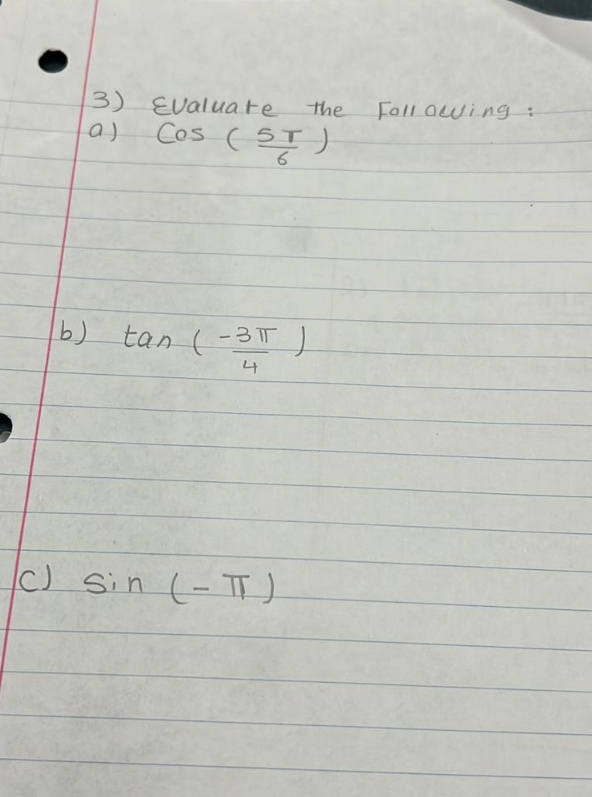 3) Evaluate the Following:
a) Cos (5π/6)
b) tan (-3π/4)
c) sin (-π)